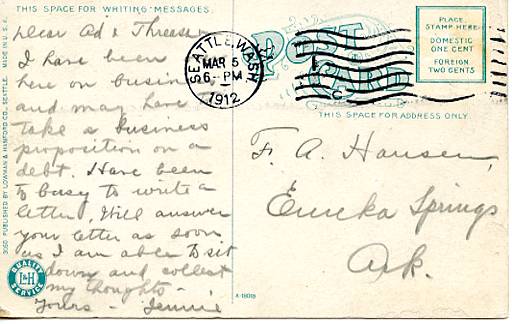 THIS SPACE FOR WRITING MESSAGES.
Dear Ad &
I have been
here on busin
and may have to
take a business
proposition on a
debt. Have been
to busy to write a
letter, Will answer
your letter as soon
as I am able to sit
down and collect
my thoughts -
Yours - Jennie
3050 PUBLISHED BY LOWMAN & HANFORD CO., SEATTLE. MADE IN U.S.A.
QUALITY
L&H
SERVICE
SEATTLE, WASH
MAR 5
6-PM
1912
POST
CARD
PLACE
STAMP HERE
DOMESTIC
ONE CENT
FOREIGN
TWO CENTS
THIS SPACE FOR ADDRESS ONLY.
F. A. Hansen,
Eureka Springs
Ark.